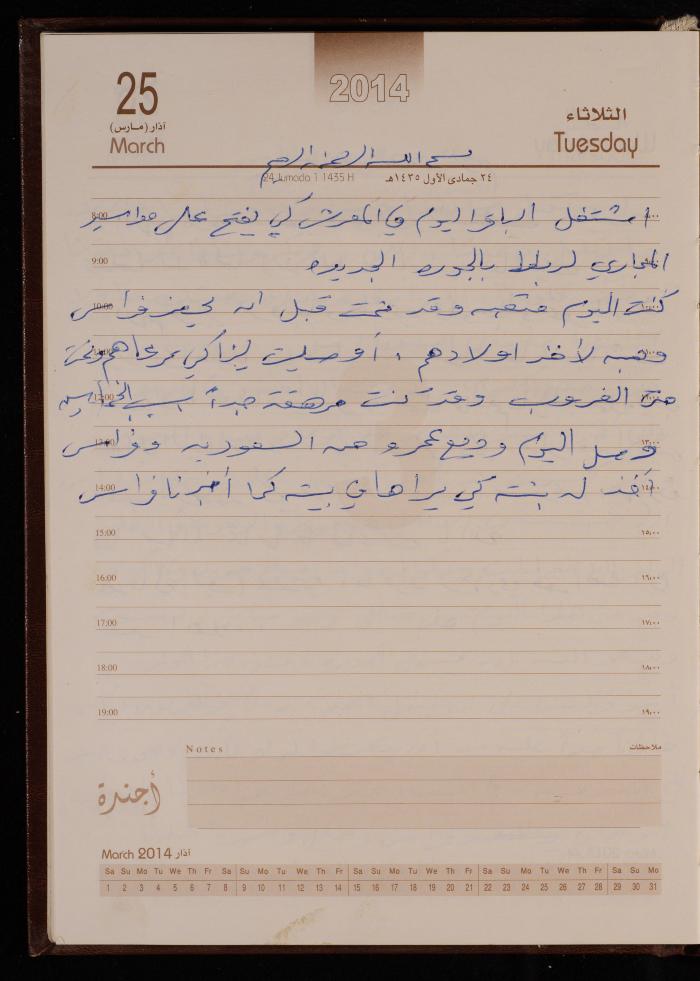 2014
25
آذار (مارس)
March
الثلاثاء
Tuesday
بسم الله الرحمن الرحيم
24 Jumada 1 1435 H
٢٤ جمادى الأول ١٤٣٥هـ
8:00 اشتغل اليوم في المفرش كي يفتح على مواسير
9:00 المجاري لربط بالجوره الجديده
10:00 كنت اليوم متعبه وقد نمت قبل ان يحضر فراس
وهبه لأخذ اولادهم ، أوصيت كي يرعاهم ونمت
حتى الغروب وقد كنت مرهقة جداً بسبب
وصل اليوم عمرو من السعوديه وفراس
14:00 أخذ له بنته كي يراها في بيته كما أخبرنا فراس
15:00 ١٥،٠٠
16:00 ١٦،٠٠
17:00 ١٧،٠٠
18:00 ١٨،٠٠
19:00 ١٩،٠٠
Notes ملاحظات
أجندة
March 2014 آذار
Sa Su Mo Tu We Th Fr Sa Su Mo Tu We Th Fr Sa Su Mo Tu We Th Fr Sa Su Mo Tu We Th Fr Sa Su Mo
1 2 3 4 5 6 7 8 9 10 11 12 13 14 15 16 17 18 19 20 21 22 23 24 25 26 27 28 29 30 31